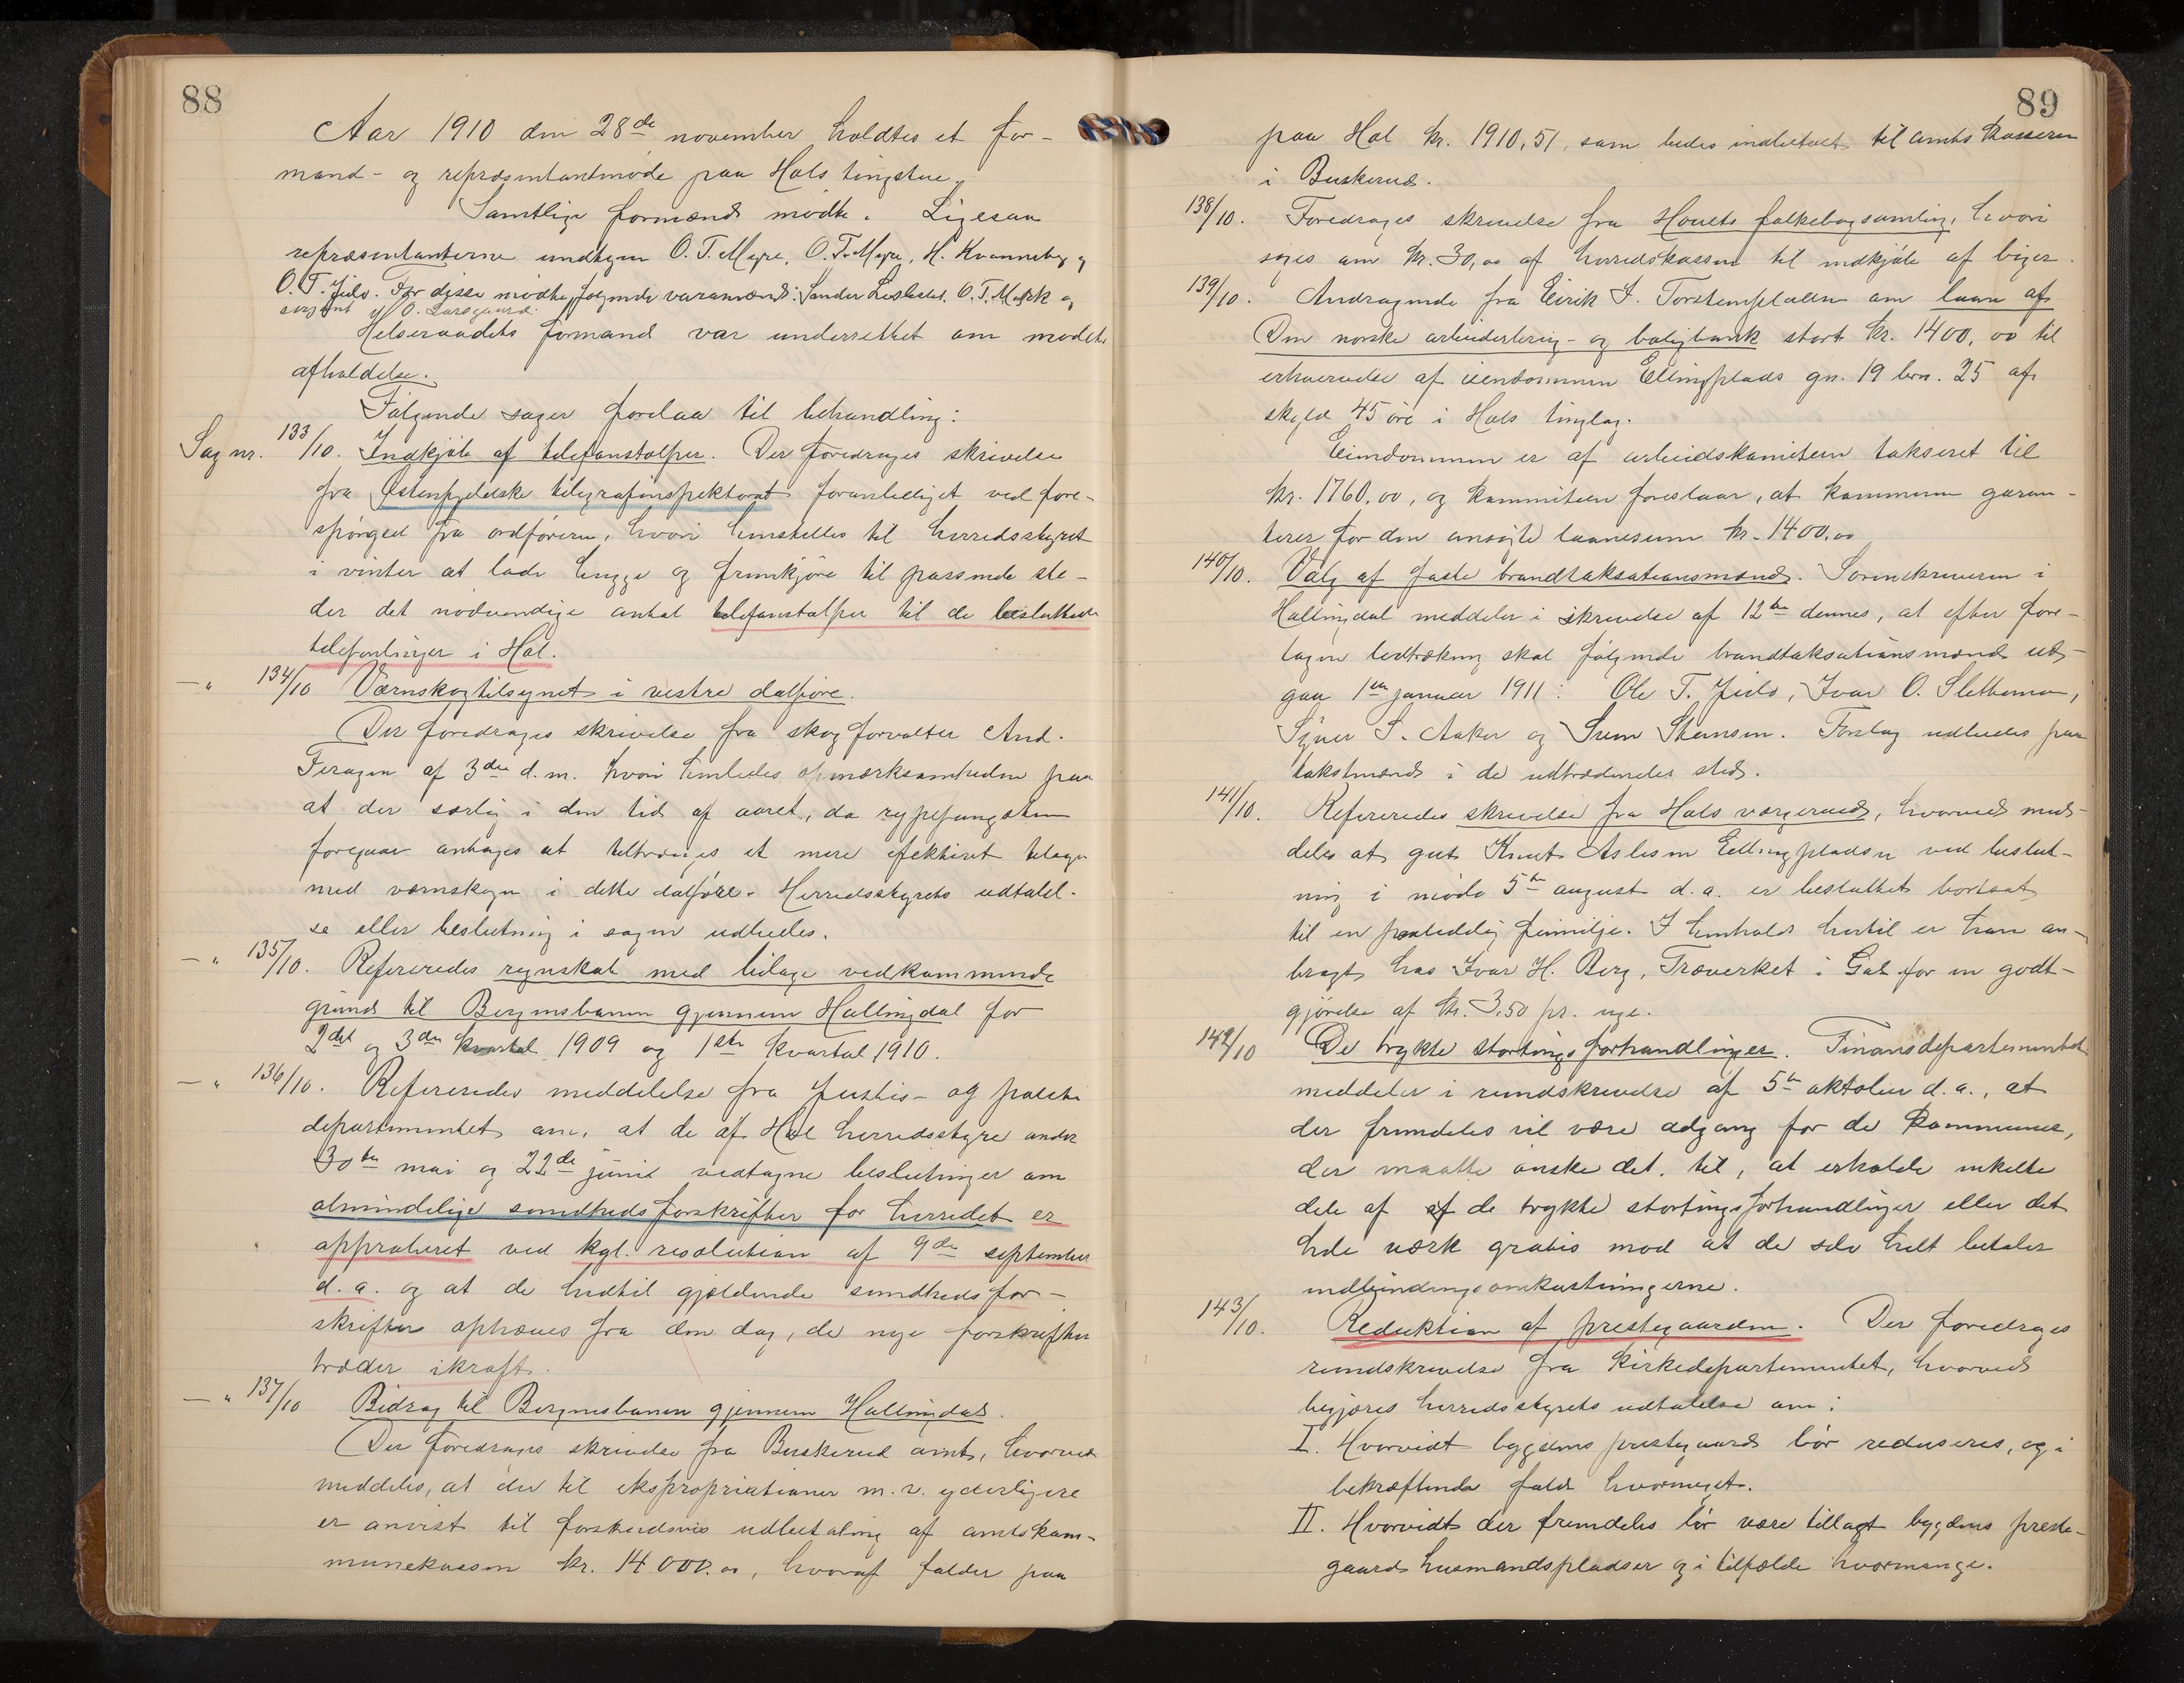 88
Aar 1910 den 28de november holdtes et for-
mand- og repræsentantmöde paa Hols tingstue.
Samtlige formænd mödte. Ligesaa
repræsentanterne undtagen O. T. Myre, O. T. Myre, H. Kvanneberg og
O. T. Jielo. For disse mödte følgende varamænd: Sander Leslested, O. T. Mørk og
O. Larsgaard.
Helseraadets formand var underrettet om mödets
afholdelse.
Følgende sager forelaa til behandling:
Sag nr. 133/10. Indkjöb af telefonstolper. Der foredroges skrivelse
fra Østenfjeldske telegrafinspektorat foranlediget ved fore-
spörgsel fra ordföreren, hvori henstilles til herredsstyret
i vinter at lade hugge og fremkjöre til passende ste-
der det nödvendige antal telefonstolper til de besluttede
telefonlinjer i Hol.
— " 134/10 Værnskogtilsynet i vestre dalföre.
Der foredroges skrivelse fra skogforvalter And.
Feragen af 3die d.m. hvori henledes opmærksomheden paa
at der særlig i den tid af aaret, da rypefangsten
foregaar antages at tiltrænges et mere efektivt tilsyn
med værnskogen i dette dalföre. Herredsstyrets udtalel-
se eller beslutning i sagen udbedes.
— " 135/10. Refereredes regnskab med bilage vedkommende
grund til Bergensbanen gjennem Hallingdal for
2det og 3die kvartal 1909 og 1ste kvartal 1910.
— " 136/10. Refereredes meddelelse fra justis- og politi
departementet om, at de af Hol herredsstyre under
30te mai og 22de juni vedtagne beslutninger om
almindelige sundhedsforskrifter for herredet er
approberet ved kgl. resolution af 9de september
d. a. og at de hidtil gjældende sundhedsfor-
skrifter ophæves fra den dag, de nye forskrifter
træder ikraft.
— " 137/10 Bidrag til Bergensbanen gjennem Hallingdal.
Der foredroges skrivelse fra Buskerud amt, hvorved
meddeles, at der til ekspropriationer m.v. yderligere
er anvist til forskudsvis udbetaling af amtskom-
munekassen kr. 14 000.00, hvoraf falder paa
89
paa Hol kr. 1910,51, som bedes indbetalt til amtskasseren
i Buskerud.
138/10. Foredroges skrivelse fra Hovets folkebogsamling, hvori
söges om kr. 30,00 af herredskassen til indkjöb af böger.
139/10. Andragende fra Eirik I. Torsteinpladsen om laan af
Den norske arbeiderbrug- og boligbank stort kr. 1400,00 til
erhvervelse af eiendommen Ellingplads gn. 19 brn. 25 af
skyld 45 öre i Hols tinglag.
Eiendommen er af arbeidskomiteen takseret til
kr. 1760,00, og kommiteen foreslaar, at kommunen garan-
terer for den ansögte laanesum kr. 1400.00
140/10. Valg af faste brandtaksationsmænd. Sorenskriveren i
Hallingdal meddeler i skrivelse af 12te dennes, at efter fore-
tagen lodtrækning skal følgende brandtaksationsmænd ud-
gaa 1ste januar 1911: Ole T. Jielo, Ivar O. Slettemoen,
Syver S. Aaker og Svein Steinsen. Forslag udbedes paa
takstmænd i de udtrædendes sted.
141/10. Refereredes skrivelse fra Hols værgeraad, hvorved med-
deles at gut Knut Aslesen Ellingpladsen ved beslut-
ning i möde 5te august d.a. er besluttet bortsat
til en paalidelig familje. I henhold hertil er han an-
bragt hos Ivar H. Berg, Træverket i Gol for en godt-
gjörelse af kr. 3,50 pr. uge.
142/10 De trykte stortingsforhandlinger. Finansdepartementet
meddeler i rundskrivelse af 5te oktober d.a., at
der fremdeles vil være adgang for de kommuner,
der maatte önske det, til, at erholde enkelte
dele af af de trykte stortingsforhandlinger eller det
hele værk gratis mod at de selv helt betaler
indbindingsomkostningerne.
143/10. Reduktion af prestegaarden. Der foredroges
rundskrivelse fra Kirkedepartementet, hvorved
begjæres herredsstyrets udtalelse om:
I. Hvorvidt bygdens prestegaard bör reduseres, og i
bekræftende fald hvormeget.
II. Hvorvidt der fremdeles bör være tillagt bygdens preste-
gaard husmandspladser og i tilfælde hvormange.